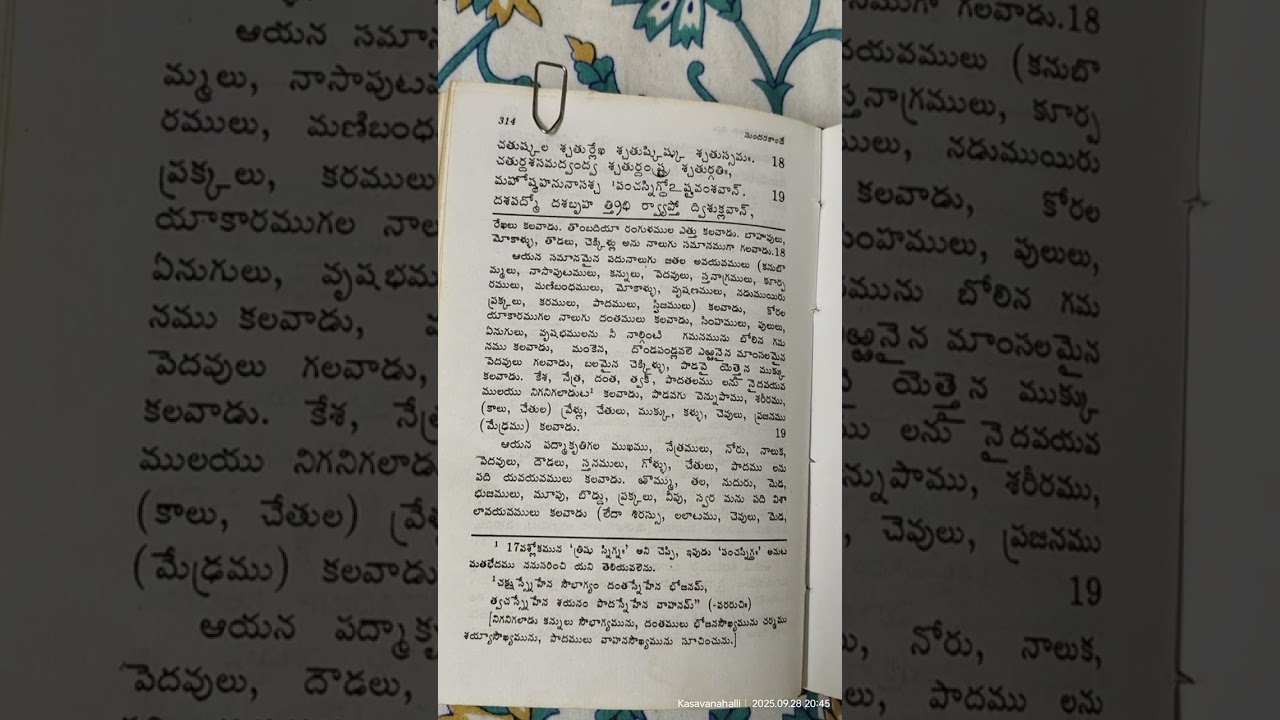 314
సుందరకాండే
చతుష్కల శ్చతుర్లేఖ శ్చతుష్కిష్కు శ్చతుస్సమః. 18
చతుర్దశసమద్వంద్వ శ్చతుర్దంష్ట్ర శ్చతుర్గతిః,
మహోష్ఠహనునాసశ్చ ¹పంచస్నిగ్ధోఽష్టవంశవాన్. 19
దశపద్మో దశబృహ త్త్రిభి ర్వ్యాప్తో ద్విశుక్లవాన్,
రేఖలు కలవాడు. తొంబదియా రంగుళముల ఎత్తు కలవాడు. బాహువులు,
మోకాళ్ళు, తొడలు, చెక్కిళ్లు అను నాలుగు సమానముగా గలవాడు.18
ఆయన సమానమైన పదునాలుగు జతల అవయవములు (కనుబొ
మ్మలు, నాసాపుటములు, కన్నులు, పెదవులు, స్తనాగ్రములు, కూర్ప
రములు, మణిబంధములు, మోకాళ్ళు, వృషణములు, నడుముయిరు
ప్రక్కలు, కరములు, పాదములు, స్ఫిజములు) కలవాడు, కోరల
యాకారముగల నాలుగు దంతములు కలవాడు, సింహములు, పులులు,
ఏనుగులు, వృషభములను నీ నాల్గింటి గమనమును బోలిన గమ
నము కలవాడు, మంకెన, దొండపండ్లవలె ఎఱ్ఱనైన మాంసలమైన
పెదవులు గలవాడు, బలమైన చెక్కిళ్ళు, పొడవై యెత్తైన ముక్కు
కలవాడు. కేశ, నేత్ర, దంత, త్వక్, పాదతలము లను నైదవయవ
ములయు నిగనిగలాడుట¹ కలవాడు, పొడవగు వెన్నుపాము, శరీరము,
(కాలు, చేతుల) వ్రేళ్లు, చేతులు, ముక్కు, కళ్ళు, చెవులు, ప్రజనము
(మేఢ్రము) కలవాడు. 19
ఆయన పద్మాకృతిగల ముఖము, నేత్రములు, నోరు, నాలుక,
పెదవులు, దౌడలు, స్తనములు, గోళ్ళు, చేతులు, పాదము లను
పది యవయవములు కలవాడు. ఱొమ్ము, తల, నుదురు, మెడ,
భుజములు, మూపు, బొడ్డు, ప్రక్కలు, వీపు, స్వర మను పది విశా
లావయవములు కలవాడు (లేదా శిరస్సు, లలాటము, చెవులు, మెడ,
¹ 17వశ్లోకమున 'త్రిషు స్నిగ్ధః' అని చెప్పి, ఇపుడు 'పంచస్నిగ్ధః' అనుట
మతభేదము ననుసరించి యని తెలియవలెను.
¹చక్షుస్స్నేహేన సౌభాగ్యం దంతస్నేహేన భోజనమ్,
త్వచస్స్నేహేన శయనం పాదస్నేహేన వాహనమ్" (-వరరుచిః)
[నిగనిగలాడు కన్నులు సౌభాగ్యమును, దంతములు భోజనసౌఖ్యమును చర్మము
శయ్యాసౌఖ్యమును, పాదములు వాహనసౌఖ్యమును సూచించును.]
Kasavanahalli | 2025.09.28 20:45